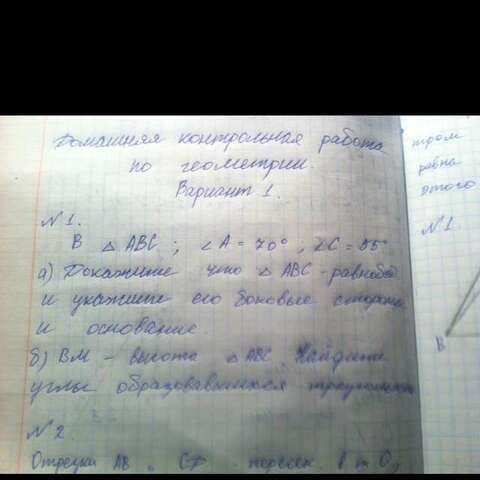 Домашняя контрольная работа
по геометрии.
Вариант 1.
N 1.
В △ ABC ; ∠A = 70° , ∠C = 55°
а) Докажите что △ ABC - равнобед
и укажите его боковые стороны
и основание.
б) BM - высота △ ABC. Найдите
углы образовавшихся треугольн
N 2
Отрезки AB и CD пересек. в т O,
тром
равна
этого
N 1.
B